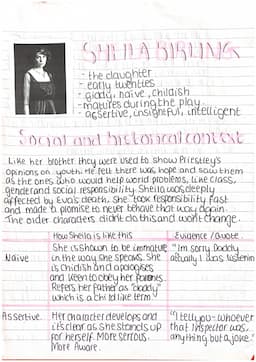 SHEILA BIRLING
- the daughter
- early twenties
- giddy, naive, childish
- matures during the play
- assertive, insightful, intelligent
Social and historical context
Like her brother they were used to show Priestley's
opinions on youth. He felt there was hope and saw them
as the ones who would help world problems, like class,
gender and social responsibility. Sheila was deeply
affected by Eva's death, she took responsibility fast
and made a promise to never behave that way again.
The older characters didn't do this and won't change.
How Sheila is like this
Evidence / Quote
Naive
She is shown to be immature
in the way she speaks. She
is childish and apologises
and keen to obey her parents.
Refers her father as "daddy"
which is a child like term.
"I'm sorry Daddy
actually I was listening
Assertive.
Her character develops and
it's clear as she stands up
for herself. More serious.
More Aware.
"I tell you - whoever
that Inspector was,
anything but a joke."